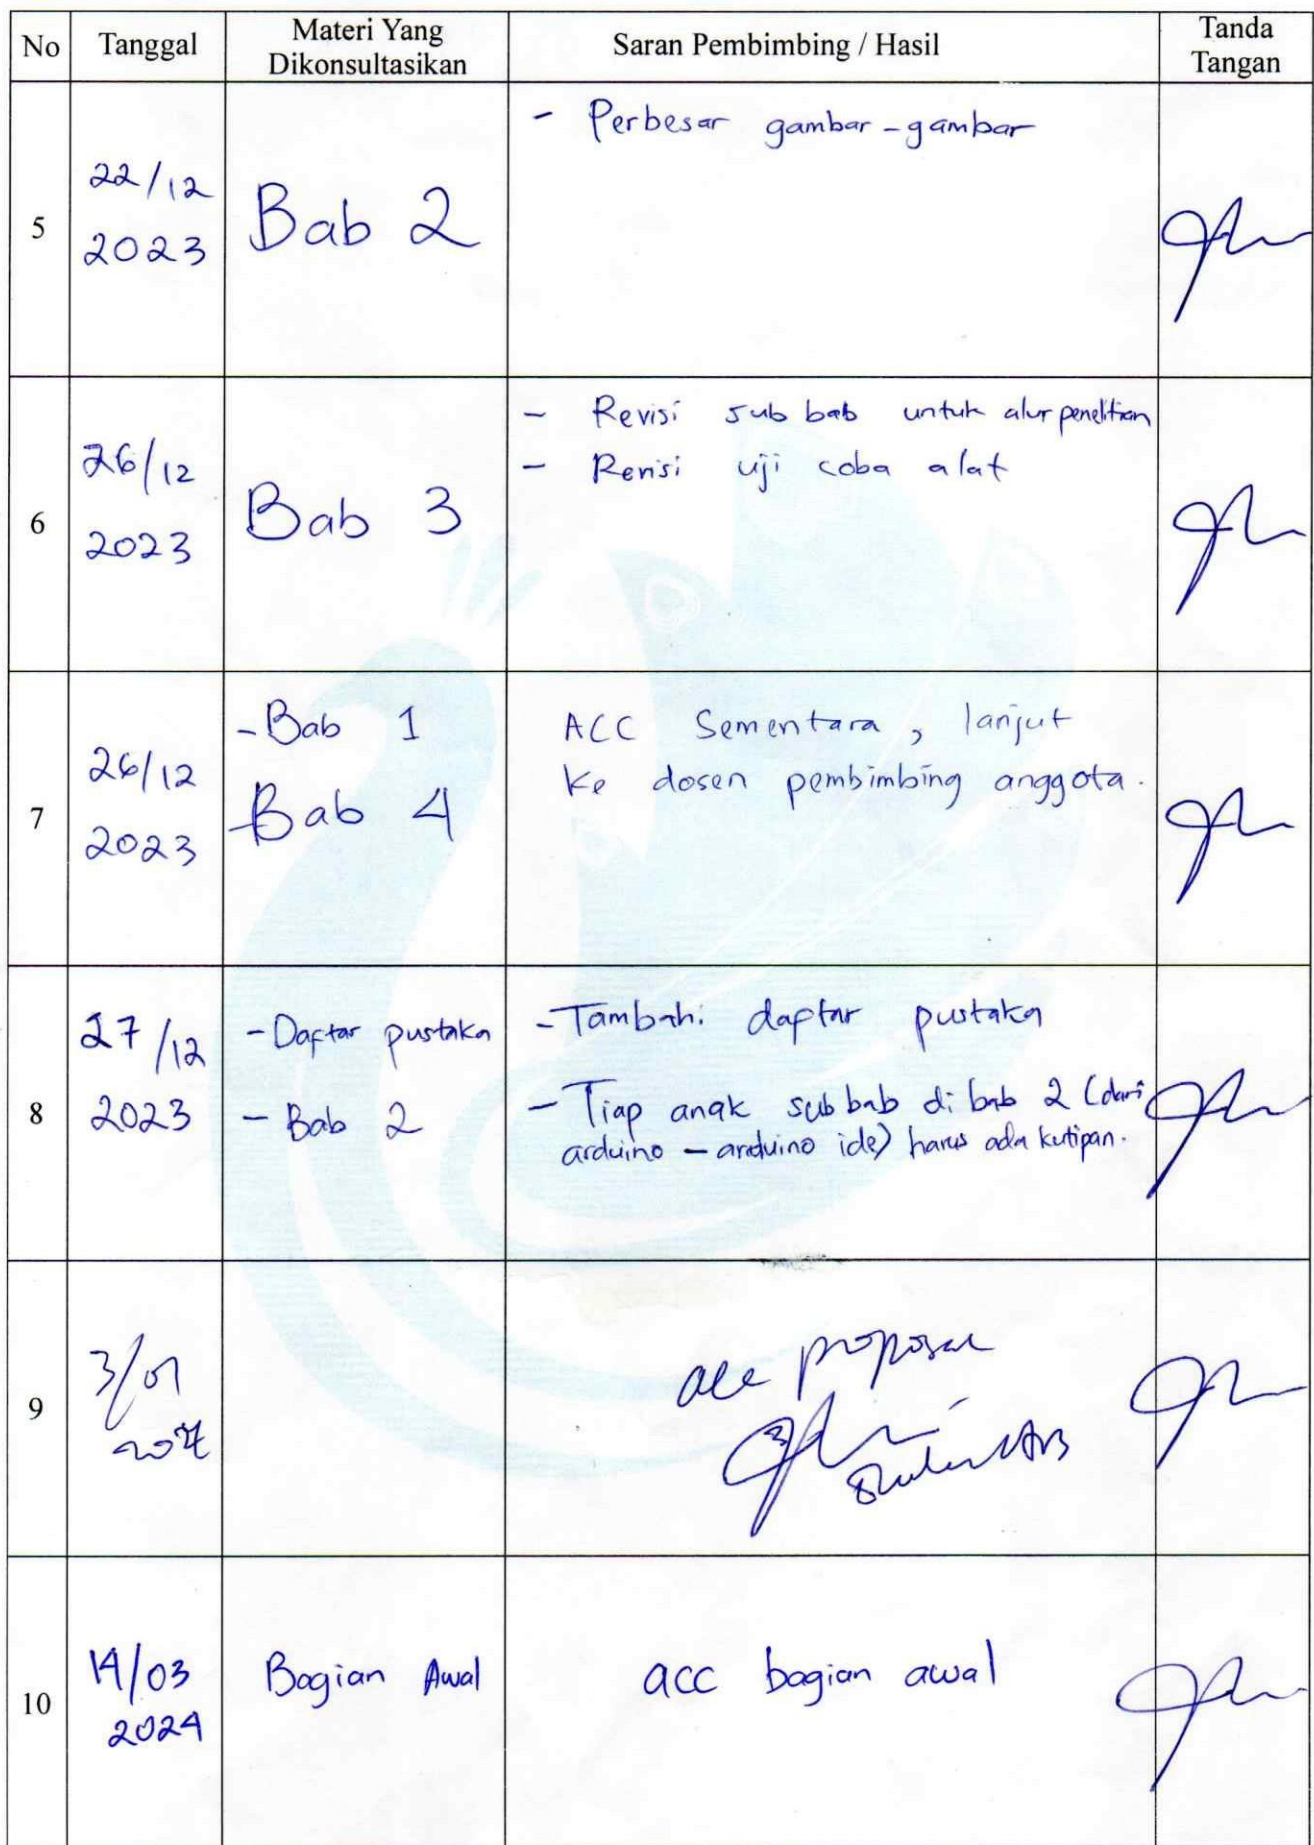 No Tanggal Materi Yang Dikonsultasikan Saran Pembimbing / Hasil Tanda Tangan
5
22/12
2023
Bab 2
- Perbesar gambar-gambar
6
26/12
2023
Bab 3
- Revisi sub bab untuk alur penelitian
- Revisi uji coba alat
7
26/12
2023
- Bab 1
- Bab 4
ACC Sementara, lanjut
ke dosen pembimbing anggota.
8
27/12
2023
- Daftar pustaka
- Bab 2
- Tambahi daftar pustaka
- Tiap anak sub bab di bab 2 (dari
arduino - arduino ide) harus ada kutipan.
9
3/01
2024
acc proposal
10
14/03
2024
Bagian Awal
acc bagian awal